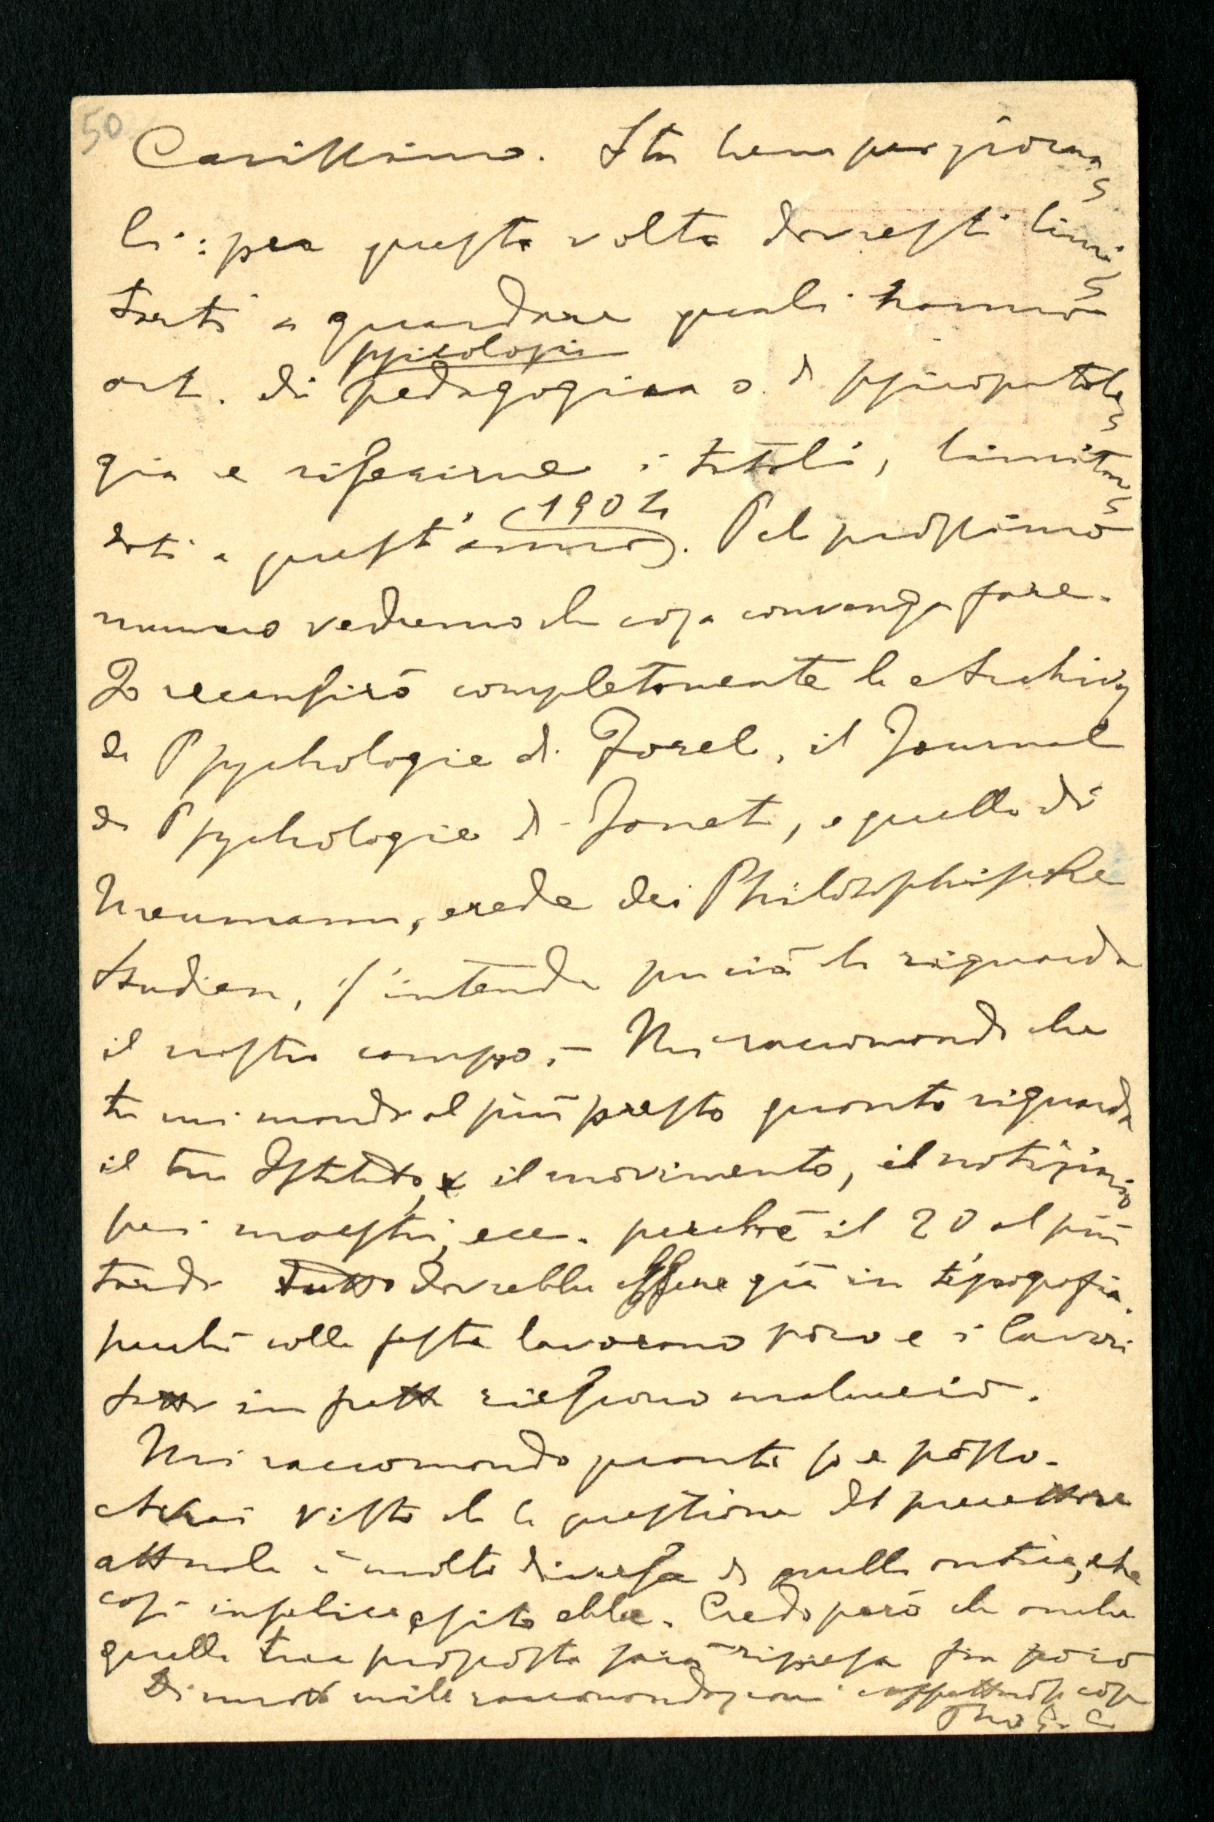 50
Carissimo. Sta bene per giorna-
li: per questa volta dovresti limi-
tarti a guardare quali hanno
psicologia
art. di pedagogica o di psicopatolo-
gia e riferirne i titoli, limitan-
doti a quest'anno (1902). Pel prossimo
numero vedremo che cosa convenga fare.
Io recensirò completamente le Archives
de Psychologie di Forel, il Journal
de Psychologie di Janet, e quello di
Meumann, erede dei Philosophische
Studien, s'intende per ciò che riguarda
il nostro campo. – Mi raccomando che
tu mi mandi al più presto quanto riguarda
il tuo Istituto, il movimento, il notiziario
pei maestri, ecc. perchè il 20 al più
tardi tutto dovrebbe essere già in tipografia.
perchè colle feste lavorano poco e i lavori
fatti in fretta riescono maluccio.
Mi raccomando quanto so e posso.
Avrai visto che la questione del precettore
attuale è molto diversa da quella antica, che
così infelice esito ebbe. Credo però che anche
quella tua proposta sarà ripresa fra poco
Di nuovo mille raccomandazioni